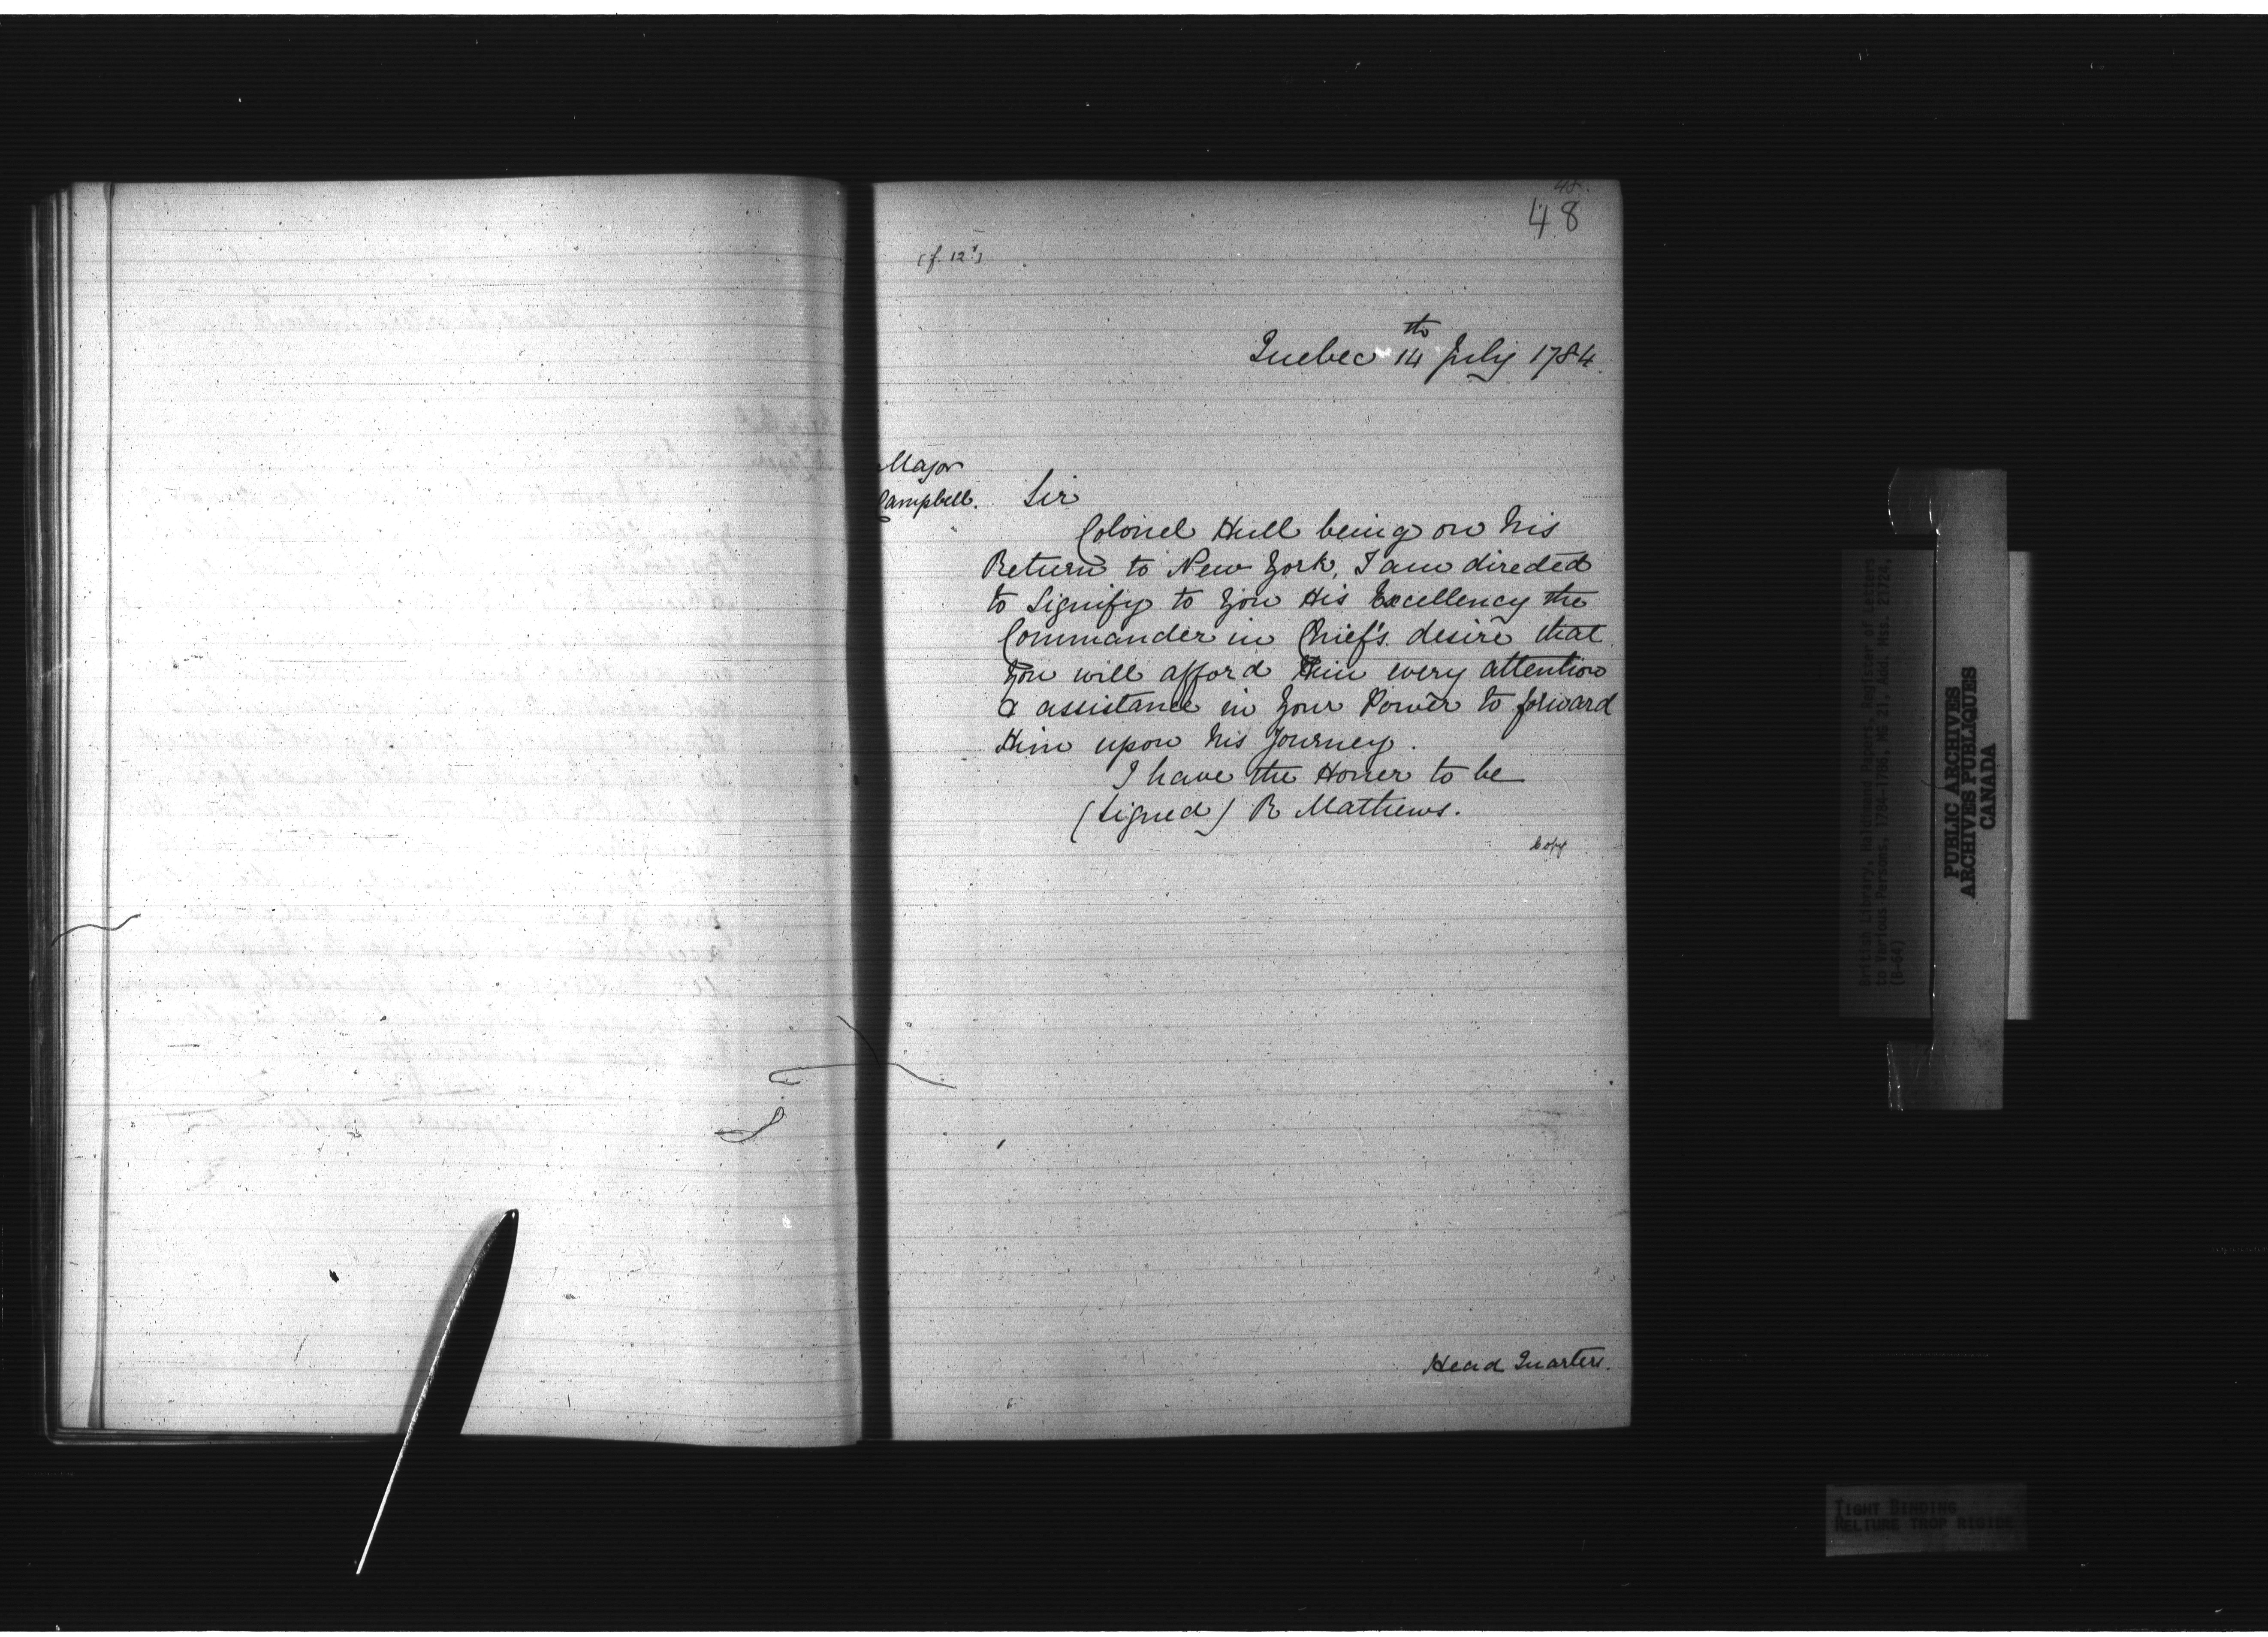 48.
48
[f. 12]
Quebec 14th July 1784.
Major
Campbell.
Sir
Colonel Hull being on his
Return to New York, I am directed
to Signify to You His Excellency the
Commander in Chief's desire that
You will afford Him every attention
& assistance in Your Power to forward
Him upon his Journey.
I have the Honer to be
(Signed) R Mathews.
Copy
Head Quarters.
British Library, Haldimand Papers, Register of Letters
to Various Persons, 1784-1786, MG 21, Add. Mss. 21724,
(B-64)
PUBLIC ARCHIVES
ARCHIVES PUBLIQUES
CANADA
TIGHT BINDING
RELIURE TROP RIGIDE